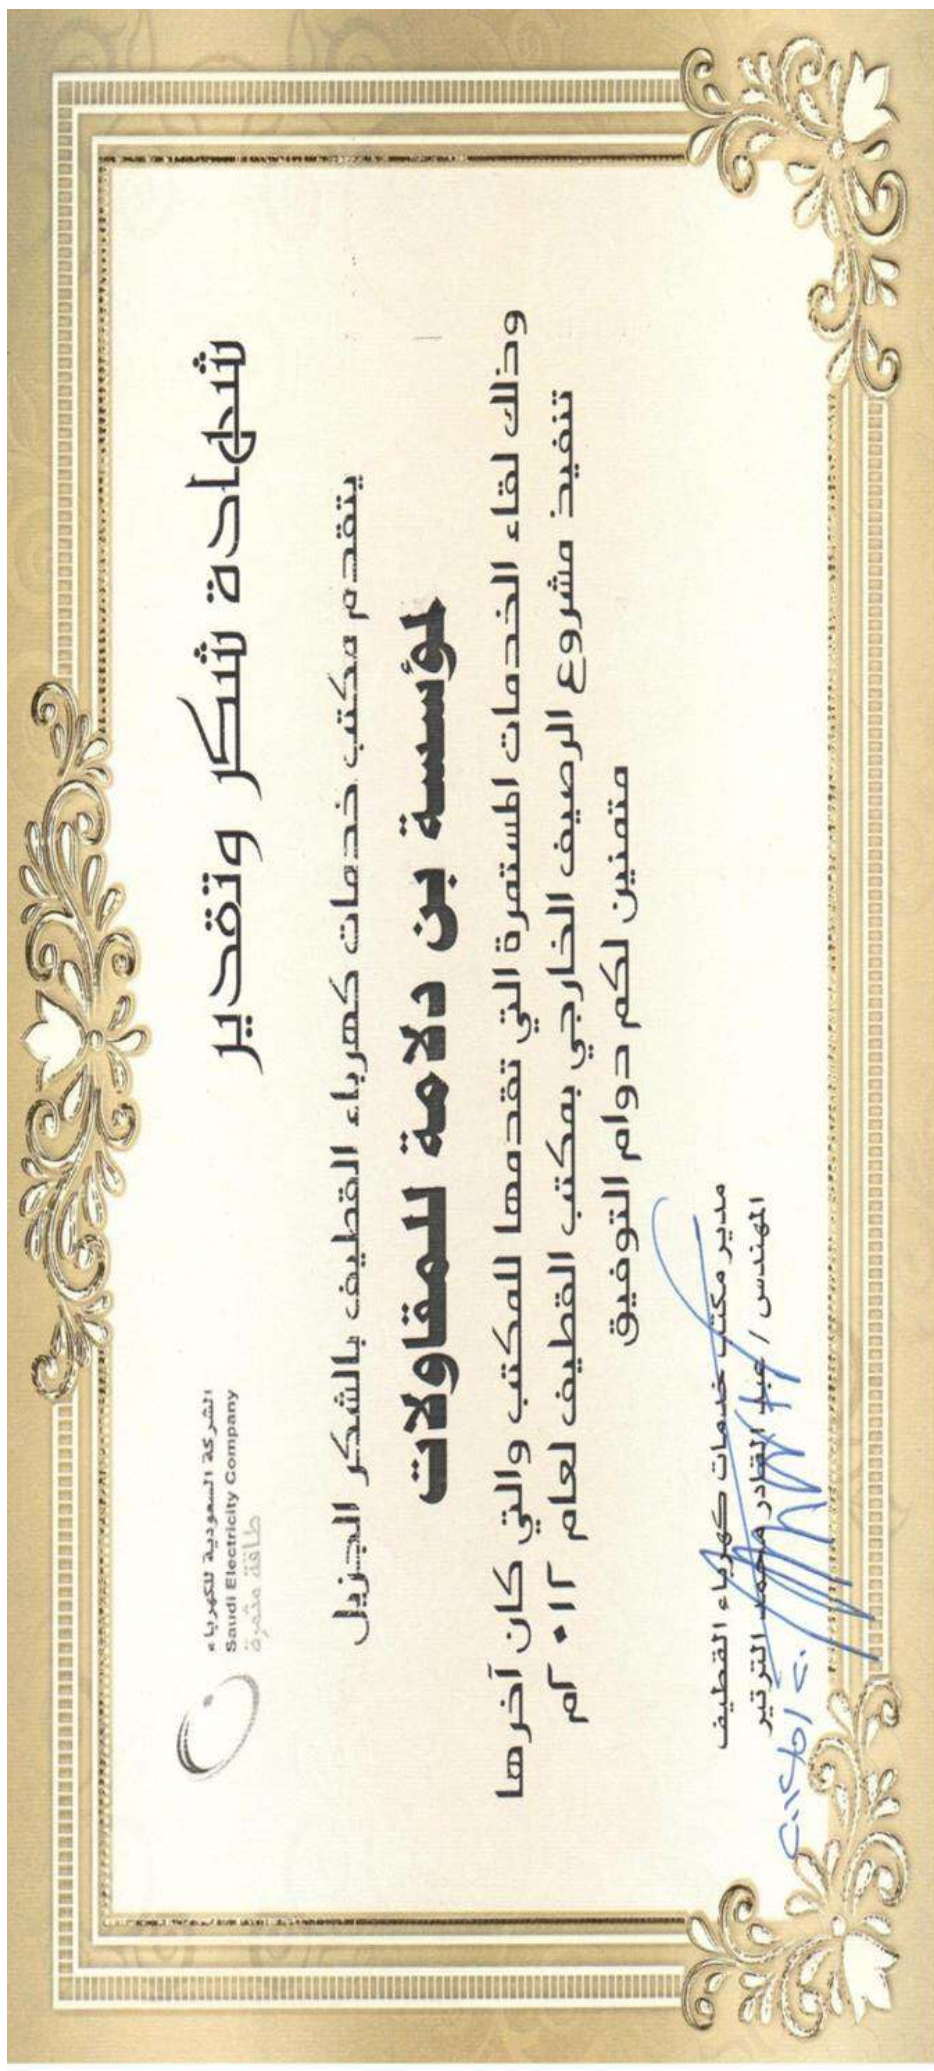 الشركة السعودية للكهرباء
Saudi Electricity Company
طاقة مثمرة
شهادة شكر وتقدير
يتقدم مكتب خدمات كهرباء القطيف بالشكر الجزيل
لمؤسسة بن دلامة للمقاولات
وذلك لقاء الخدمات المستمرة التي تقدمها للمكتب والتي كان آخرها
تنفيذ مشروع الرصيف الخارجي بمكتب القطيف لعام ٢٠١٢م
متمنين لكم دوام التوفيق
مدير مكتب خدمات كهرباء القطيف
المهندس / عبد القادر محمد الترتير